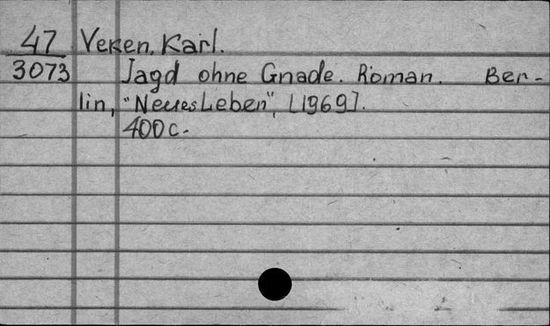 47 Veken, Karl.
3073 Jagd ohne Gnade. Roman. Ber-
lin, "Neues Leben", [1969].
400 c.